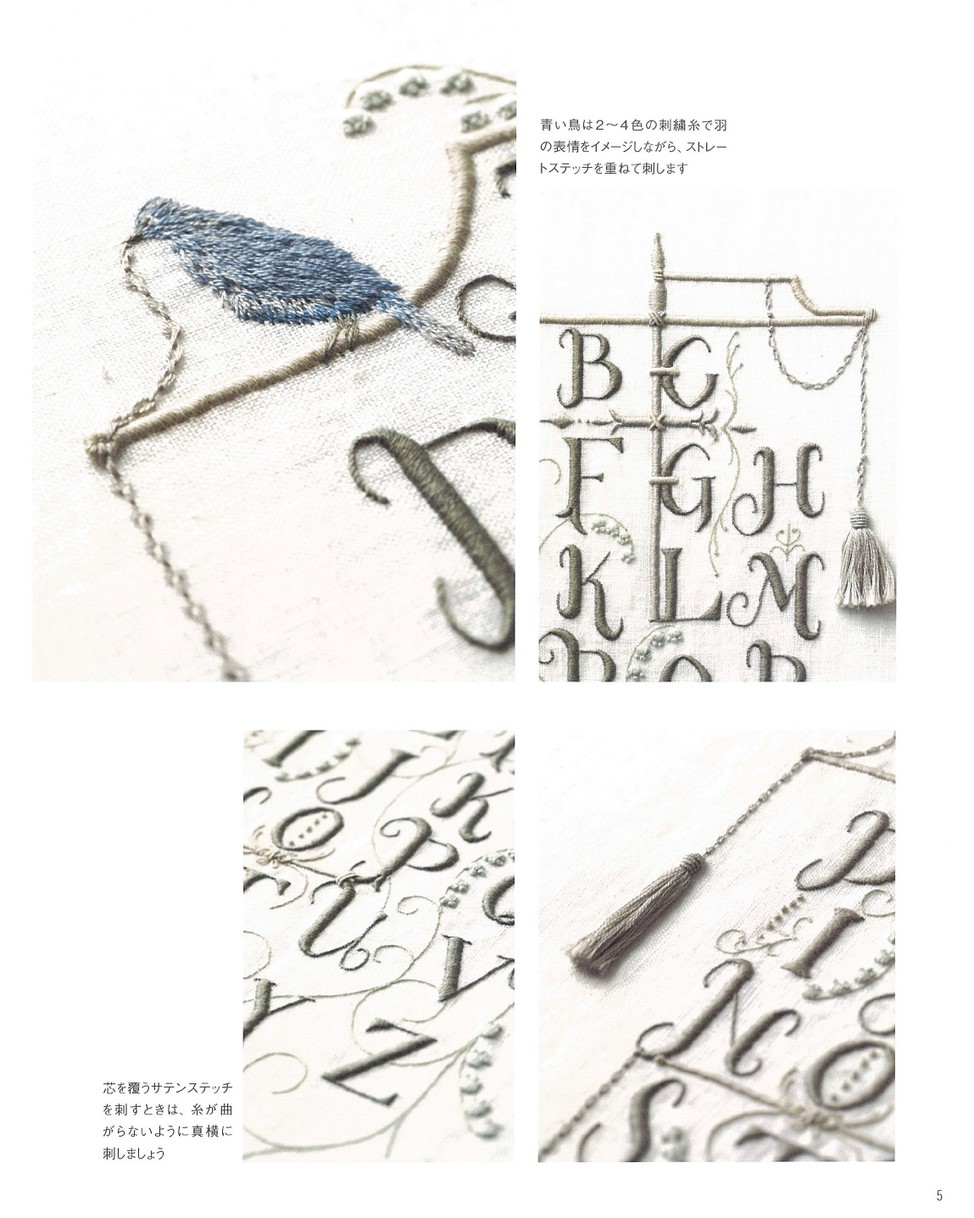 青い鳥は2〜4色の刺繍糸で羽
の表情をイメージしながら、ストレー
トステッチを重ねて刺します
B C
F G H
K L M
P Q R
I J K
O P Q
T U V
Y Z
D
I
N O
S T
芯を覆うサテンステッチ
を刺すときは、糸が曲
がらないように真横に
刺しましょう
5